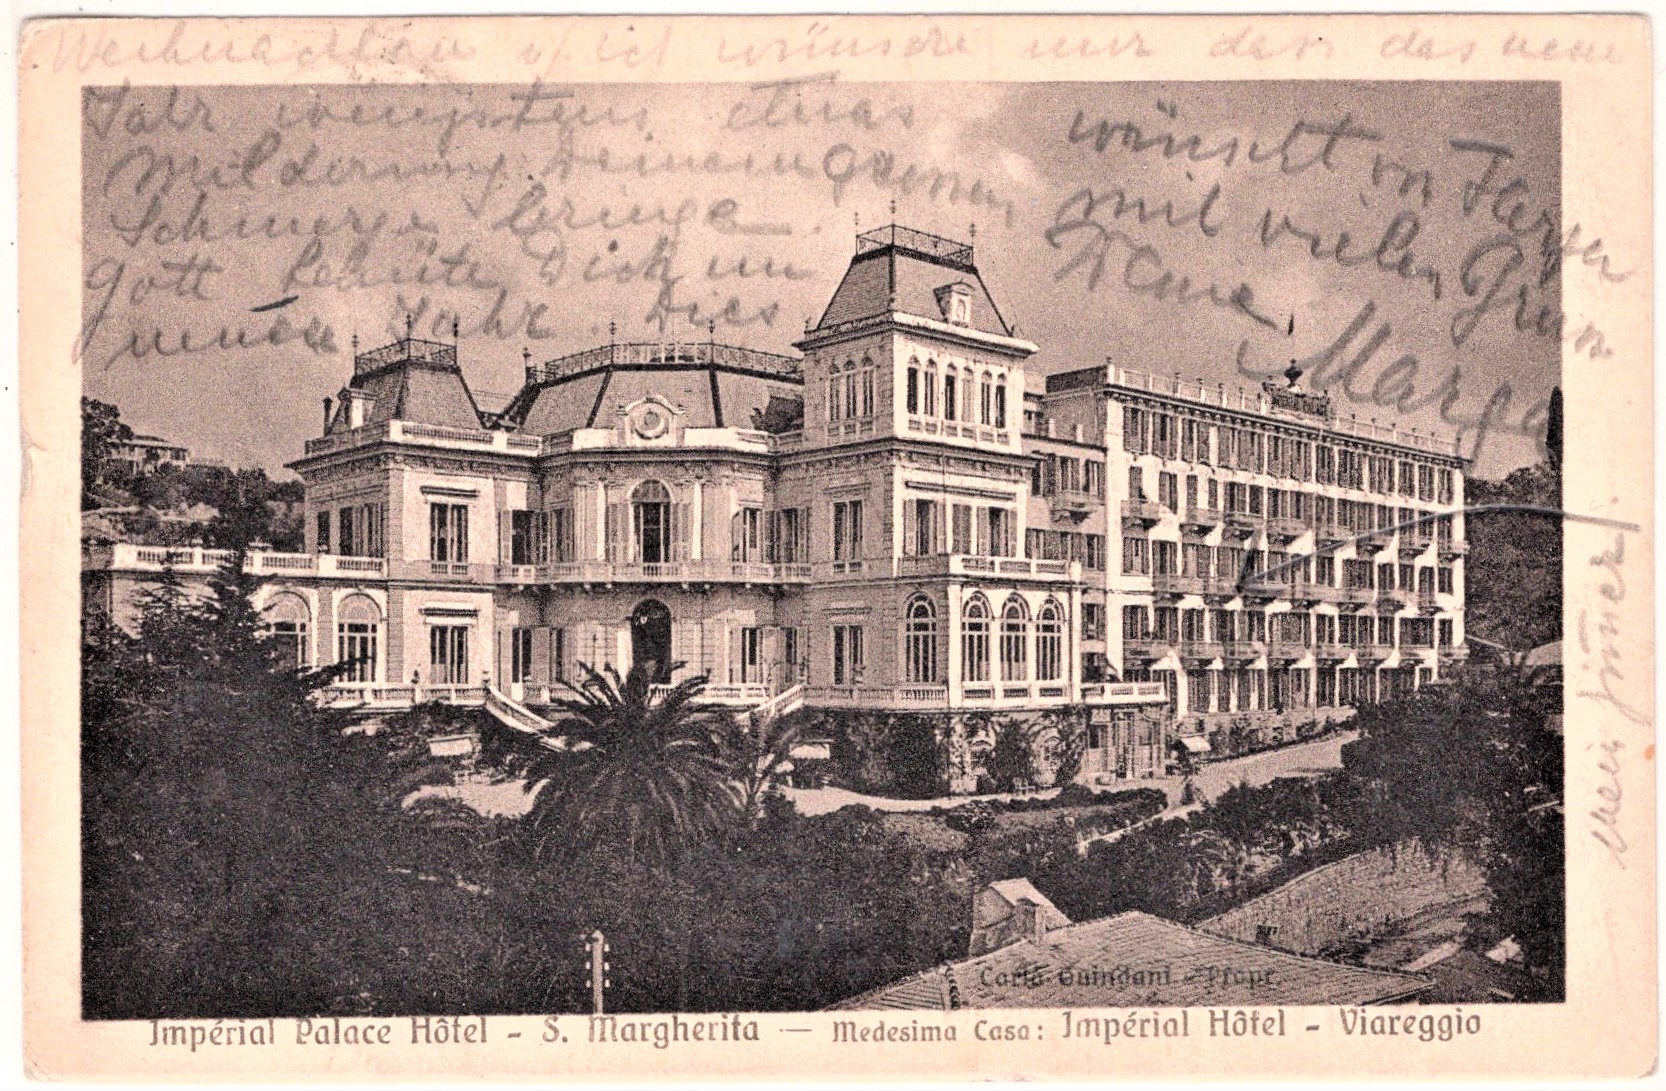 Weihnachten u. ich wünsche nur dass das neue
Jahr wenigstens etwas
Milderung Deinem grossen
Schmerze bringe.
Gott behüte Dich im
neuen Jahr. Dies
wünscht von Herzen
mit vielen Grüssen
Deine
Marga
Mein Zimmer
Carlo Guindani - Propr.
Impérial Palace Hôtel - S. Margherita — Medesima Casa: Impérial Hôtel - Viareggio